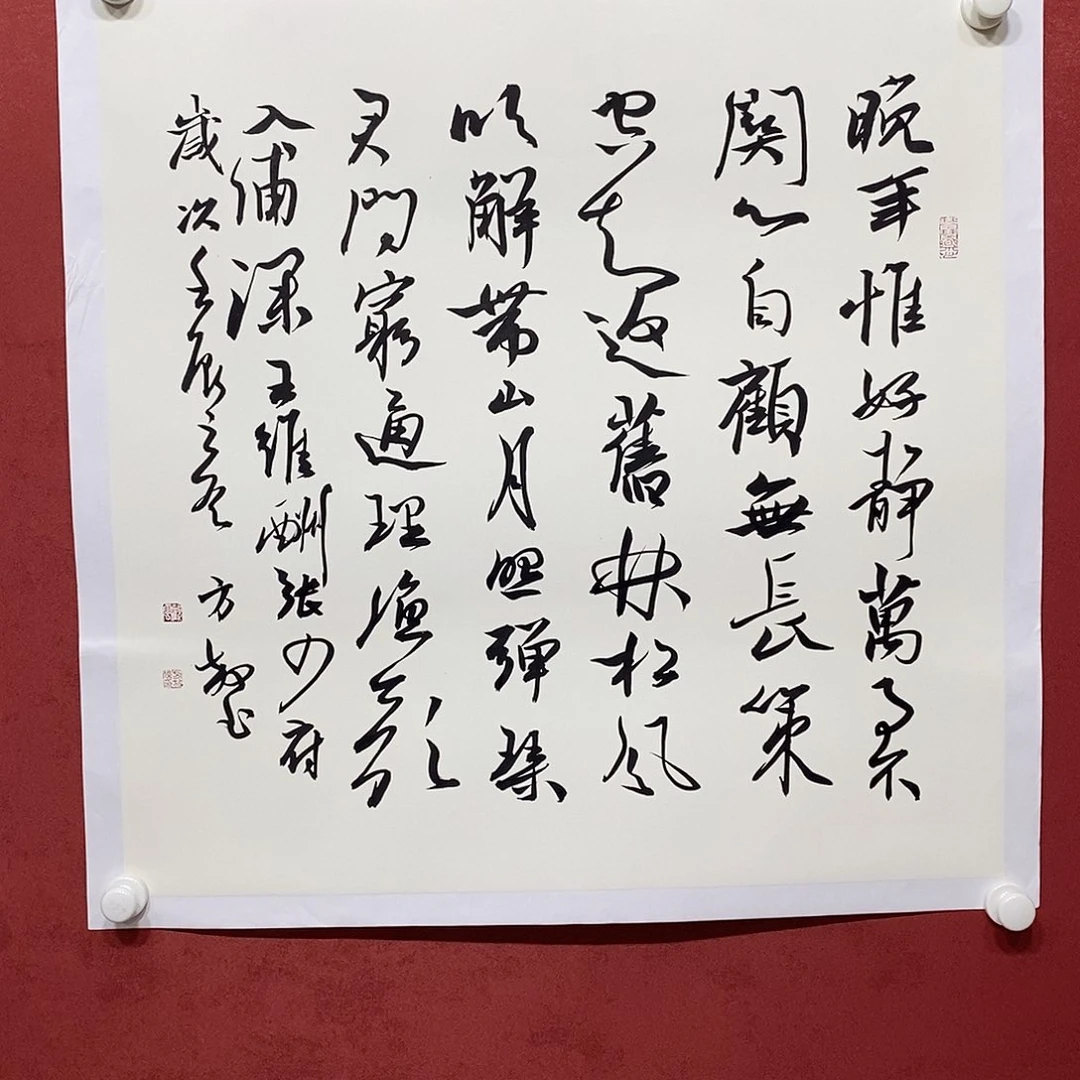 晚年惟好靜萬事不
關心自顧無長策
空知返舊林松風
吹解帶山月照彈琴
君問窮通理漁歌
入浦深王維酬張少府
歲次壬辰之冬 方